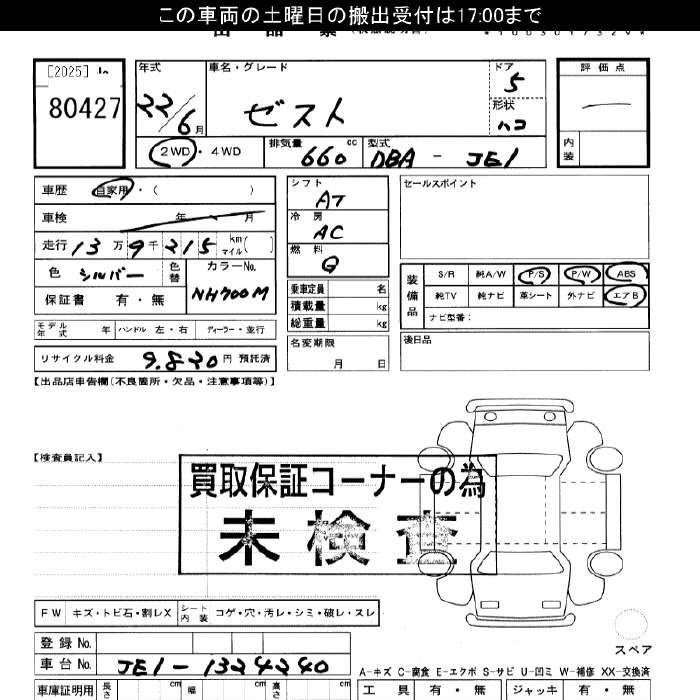 この車両の土曜日の搬出受付は17:00まで
[2025]
80427
年式 22/6月
車名・グレード ゼスト
ドア 5
形状 ハコ
評価点 —
内装
2WD・4WD
排気量 660 cc
型式 DBA - JE1
車歴 自家用・( )
車検 年 月
走行 13万9千215 km マイル( )
色 シルバー 色替 カラーNo. NH700M
保証書 有・無
シフト AT
冷房 AC
燃料 G
乗車定員 名
積載量 kg
総重量 kg
名変期限 月 日
セールスポイント
装備品
S/R 純A/W P/S P/W ABS
純TV 純ナビ 革シート 外ナビ エアB
ナビ型番：
後日品
モデル年式 年 ハンドル 左・右 ディーラー・並行
リサイクル料金 9.820 円 預託済
【出品店申告欄(不良箇所・欠品・注意事項等)】
【検査員記入】
買取保証コーナーの為
未検査
FW キズ・トビ石・割レX シート内装 コゲ・穴・汚レ・シミ・破レ・スレ
スペア
登録 No.
車台 No. JE1-1324240
A-キズ C-腐食 E-エクボ S-サビ U-凹ミ W-補修 XX-交換済
車庫証明用 長さ cm 幅 cm 高さ cm
工具 有・無 ジャッキ 有・無